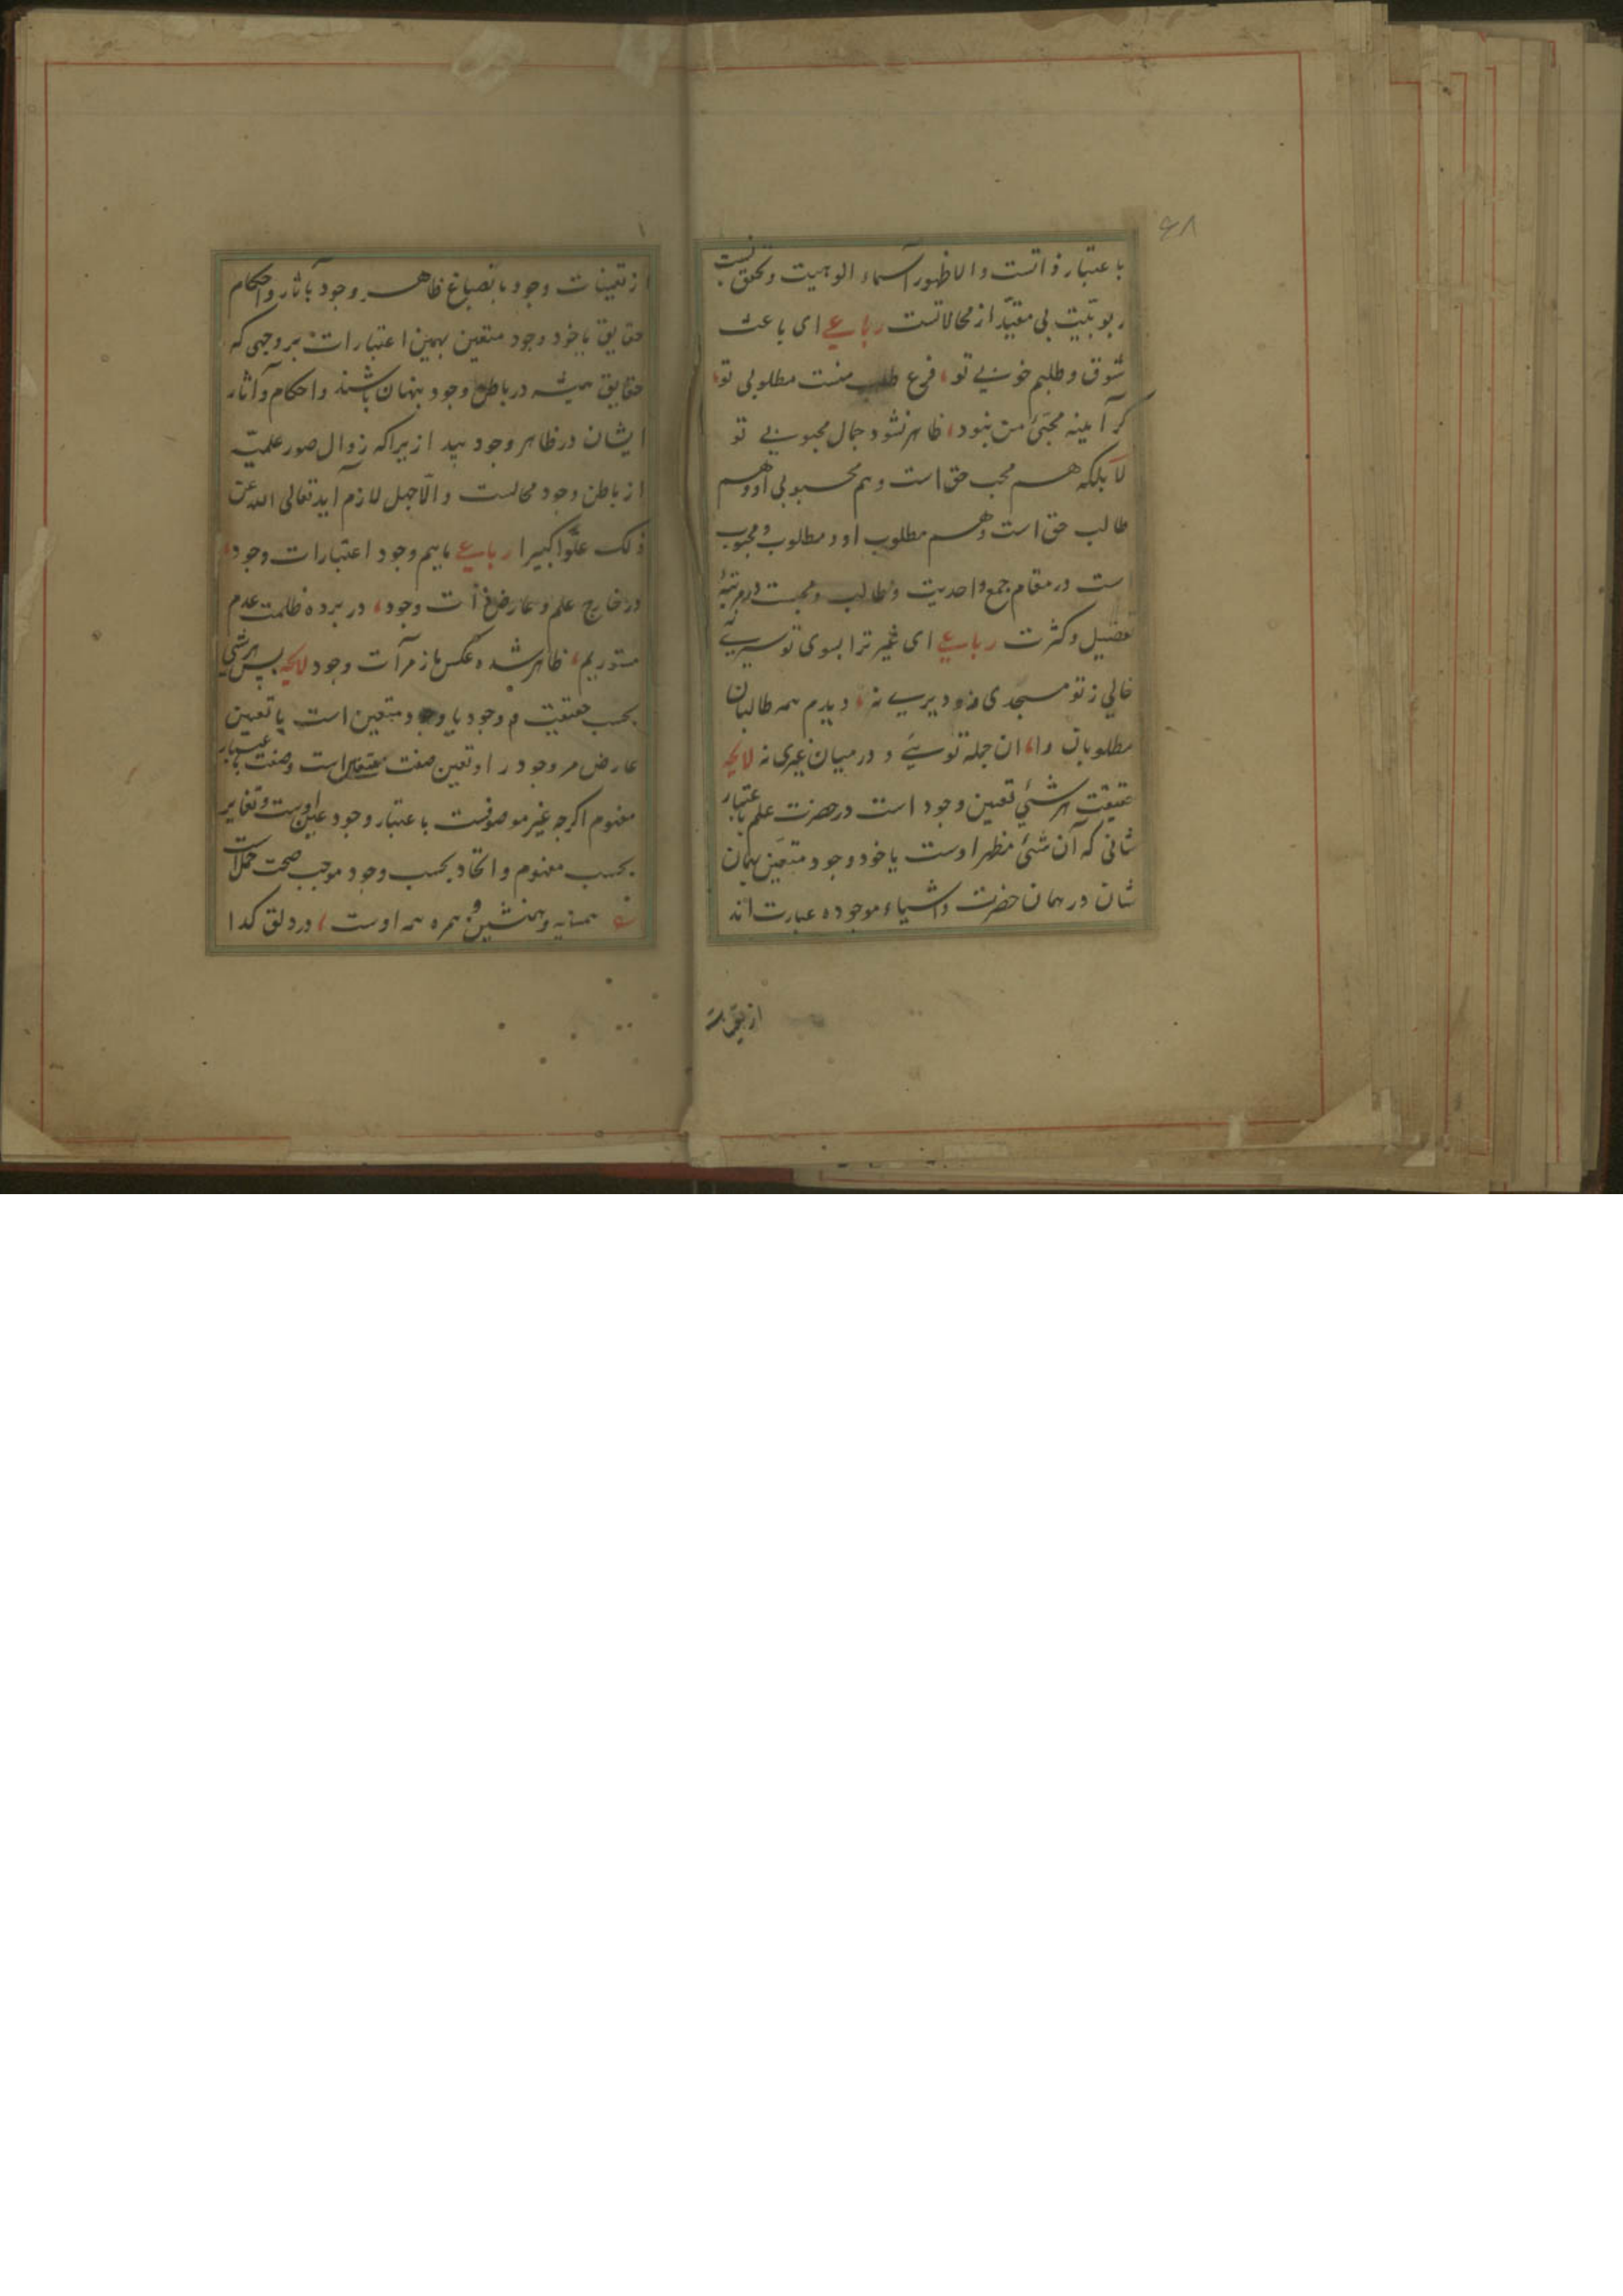 ۴۸
باعتبار ذاتست والا ظهور اسماء الوهیت و تحقق نسبت
ربوبیّت بی مقیّد از محالاتست رباعی ای باعث
شوق و طلبم خوبی تو، فرع طلب منست مطلوبی تو،
کر آیینه محبّئ من نبود، ظاهر نشود جمال محبوبی تو
لا بلکه هم محب حق است و هم محبوبی او و هم
طالب حق است و هم مطلوب او و مطلوب و محبوب
ست در مقام جمع واحدیت و طالب و محبت در مرتبهٔ
تفضیل و کثرت رباعی ای غیر ترا بسوی تو سیری نه
خالی ز تو مسجدی و دیری نه، دیدم همه طالبان
مطلوبان را، ان جمله توئی و در میان غیری نه لایحه
حقیقت هر شئی تعین وجود است در حضرت علم باعتبار
شانی که آن شئ مظهر اوست یا خود وجود متعین بهمان
شان در همان حضرت و اشیاء موجوده عبارت اند
از تعینات
از تعینات وجود بانصباغ ظاهر وجود بآثار واحکام
حقایق یا خود وجود متعین بهمین اعتبارات بر وجهی که
حقایق همیشه در باطن وجود پنهان باشند واحکام وآثار
ایشان در ظاهر وجود پیدا زیراکه زوال صور علمیّه
از باطن وجود محالست والّا جهل لازم اید تعالی الله عن
ذلک علوّا کبیرا رباعی ماییم وجود اعتبارات وجود،
در خارج علم و عارض ذات وجود، در پرده ظلمت عدم
مستوریم، ظاهر شده عکس ما ز مرآت وجود لایحه پس هر شئ
بحسب حقیقت و وجود یا وجود متعین است یا تعین
عارض مر وجود را و تعین صفت متعین است وصفت باعتبار
مفهوم اکرچه غیر موصوفست باعتبار وجود عین اوست و تغایر
بحسب مفهوم و اتحاد بحسب وجود موجب صحت حمل است
همسایه و همنشین و همره همه اوست، در دلق کدا